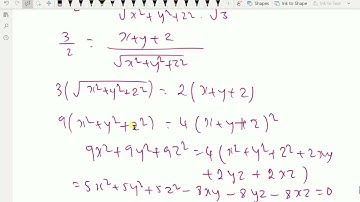 √x²+y²+z² . √3
3/2 = x+y+z / √x²+y²+z²
3(√x²+y²+z²) = 2(x+y+z)
9(x²+y²+z²) = 4(x+y+z)²
9x²+9y²+9z² = 4(x²+y²+z²+2xy
+2yz+2xz)
=5x²+5y²+5z²-8xy-8yz-8xz=0